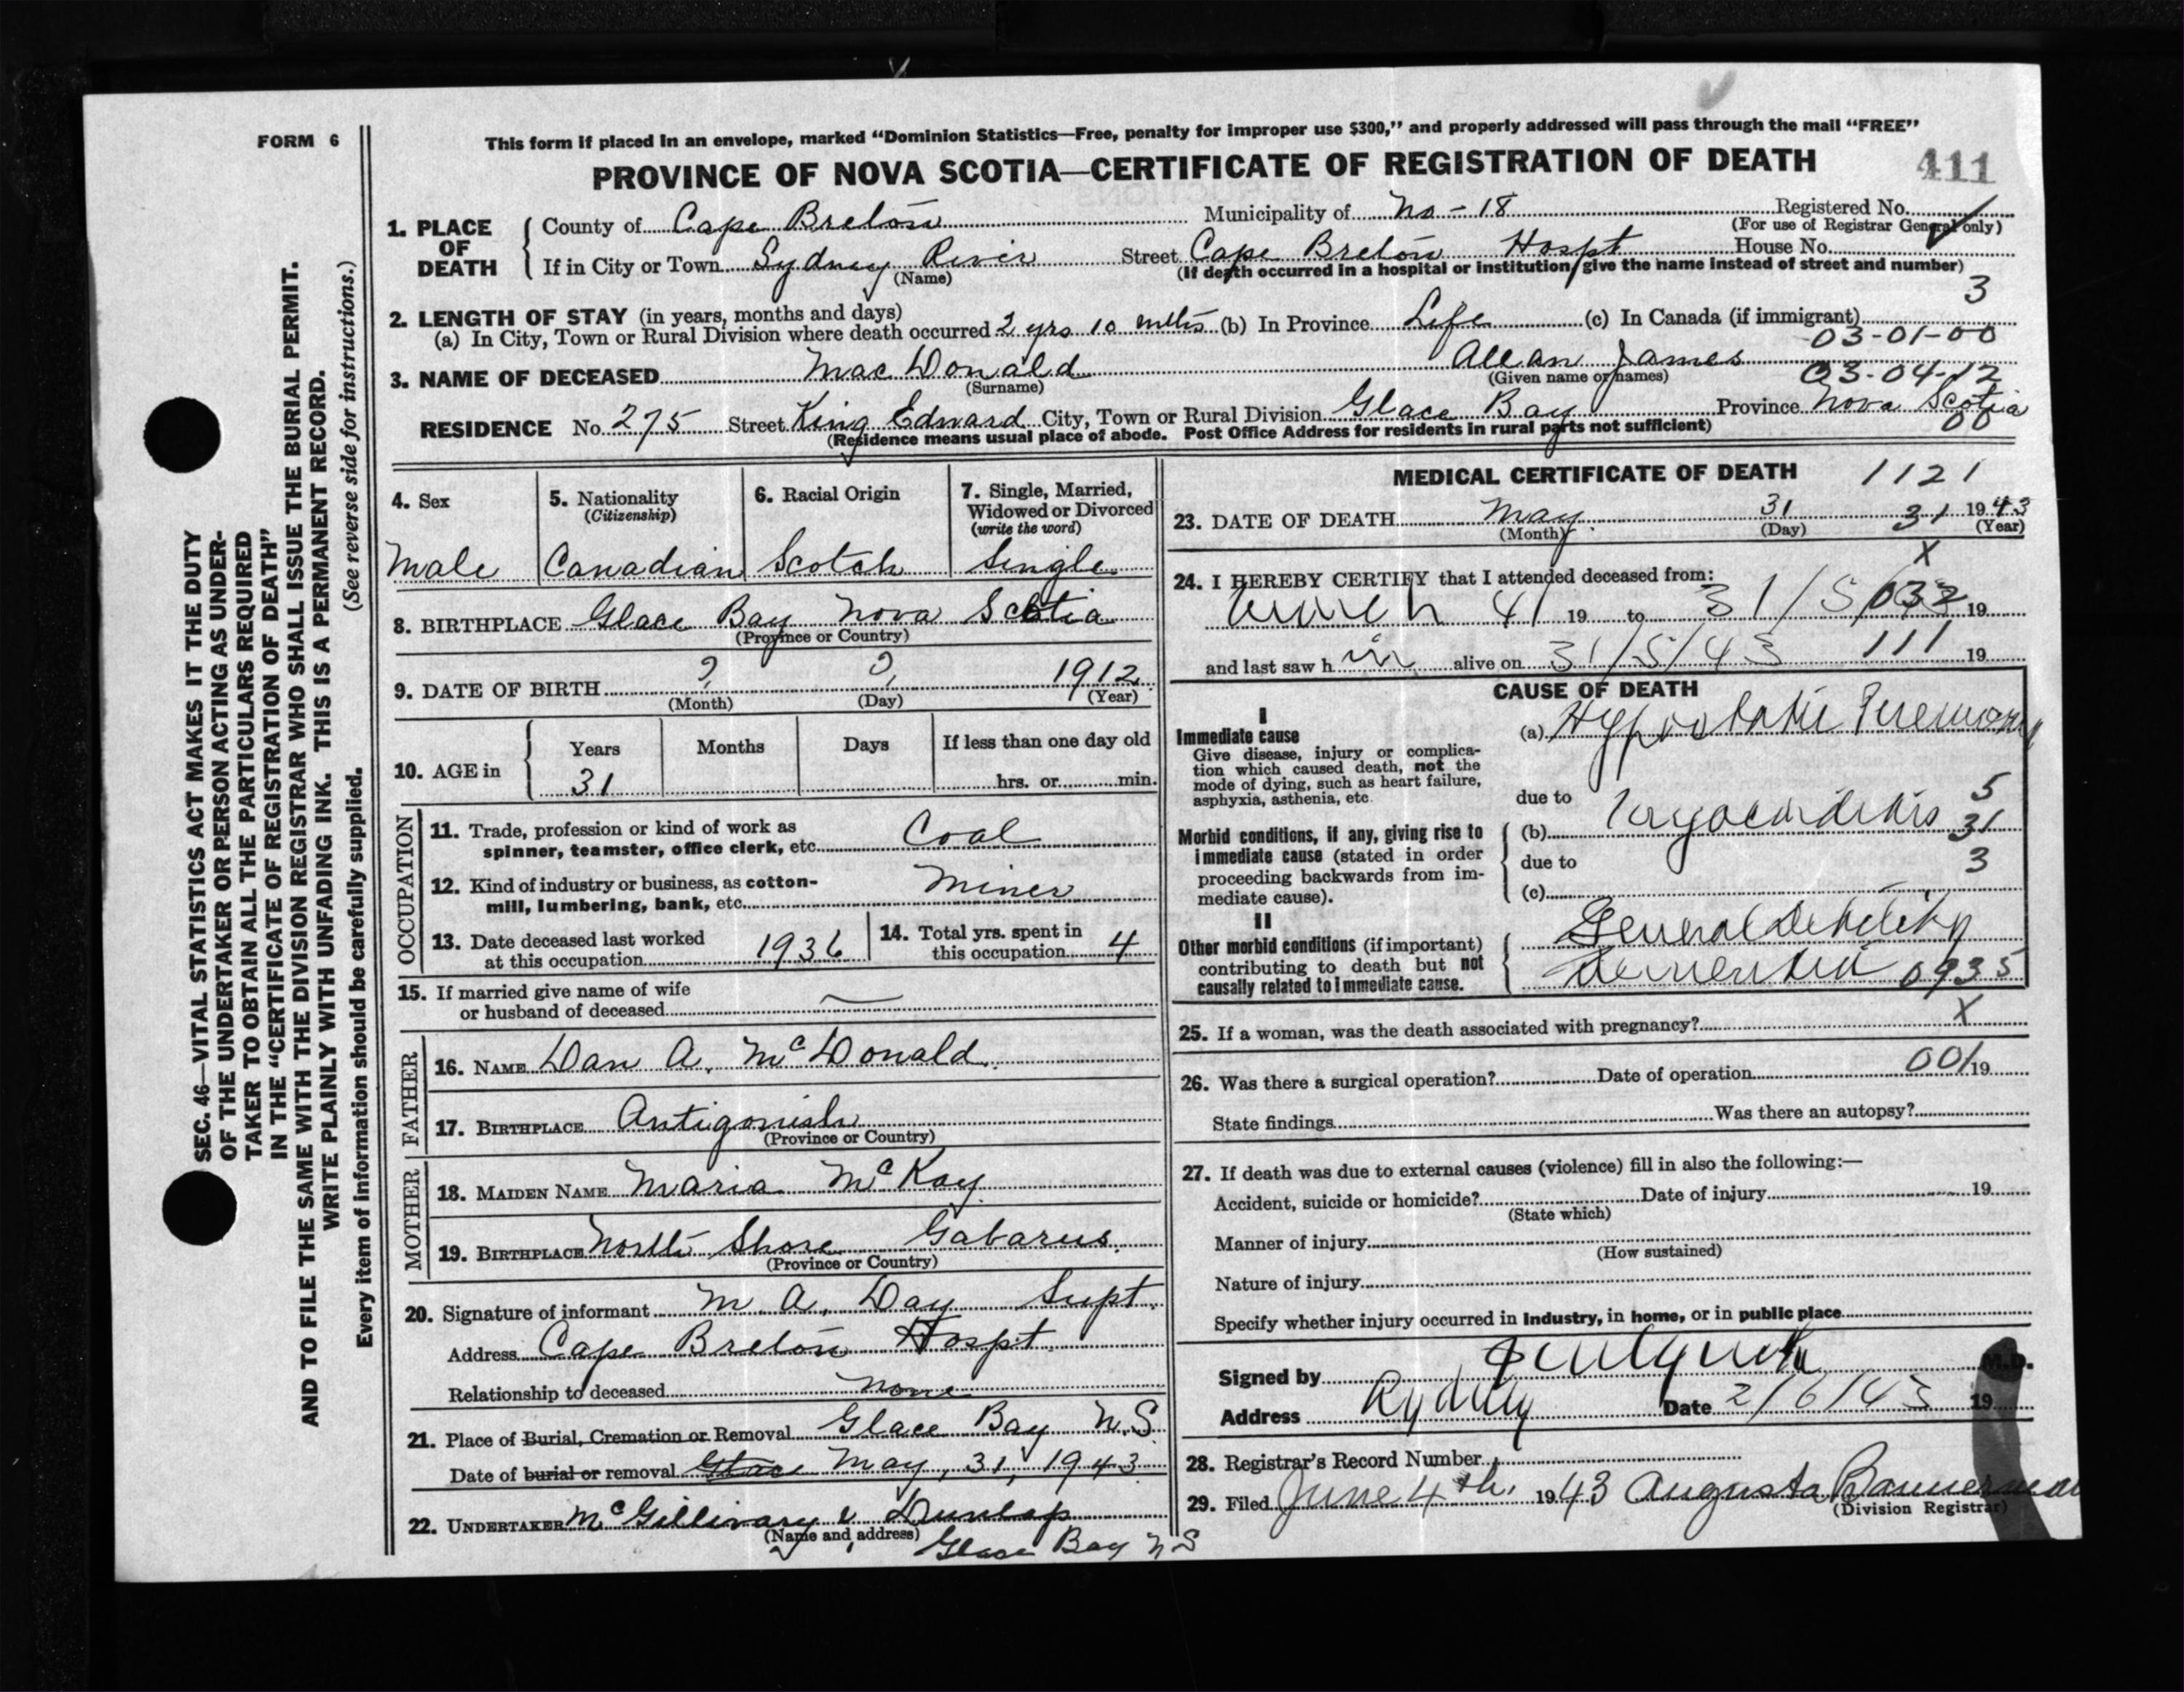 FORM 6
This form if placed in an envelope, marked “Dominion Statistics—Free, penalty for improper use $300,” and properly addressed will pass through the mail “FREE”
PROVINCE OF NOVA SCOTIA—CERTIFICATE OF REGISTRATION OF DEATH
411
SEC. 46—VITAL STATISTICS ACT MAKES IT THE DUTY
OF THE UNDERTAKER OR PERSON ACTING AS UNDER-
TAKER TO OBTAIN ALL THE PARTICULARS REQUIRED
IN THE “CERTIFICATE OF REGISTRATION OF DEATH”
AND TO FILE THE SAME WITH THE DIVISION REGISTRAR WHO SHALL ISSUE THE BURIAL PERMIT.
WRITE PLAINLY WITH UNFADING INK. THIS IS A PERMANENT RECORD.
(See reverse side for instructions.)
Every item of information should be carefully supplied.
1. PLACE OF DEATH
County of Cape Breton Municipality of No - 18 Registered No.
(For use of Registrar General only)
If in City or Town Sydney River Street Cape Breton Hospt House No.
(Name) (If death occurred in a hospital or institution, give the name instead of street and number)
3
2. LENGTH OF STAY (in years, months and days)
(a) In City, Town or Rural Division where death occurred 2 yrs 10 mths (b) In Province Life (c) In Canada (if immigrant)
03-01-00
3. NAME OF DECEASED Mac Donald Allan James
(Surname) (Given name or names) 03-04-12
RESIDENCE No. 275 Street King Edward City, Town or Rural Division Glace Bay Province Nova Scotia
(Residence means usual place of abode. Post Office Address for residents in rural parts not sufficient) 00
4. Sex Male
5. Nationality (Citizenship) Canadian
6. Racial Origin Scotch
7. Single, Married, Widowed or Divorced (write the word) Single
8. BIRTHPLACE Glace Bay Nova Scotia
(Province or Country)
9. DATE OF BIRTH ? ? 1912
(Month) (Day) (Year)
10. AGE in Years Months Days If less than one day old
31 hrs. or min.
OCCUPATION
11. Trade, profession or kind of work as
spinner, teamster, office clerk, etc. Coal
12. Kind of industry or business, as cotton-
mill, lumbering, bank, etc. Miner
13. Date deceased last worked
at this occupation 1936
14. Total yrs. spent in
this occupation 4
15. If married give name of wife
or husband of deceased —
FATHER
16. NAME Dan A. McDonald
17. BIRTHPLACE Antigonish
(Province or Country)
MOTHER
18. MAIDEN NAME Maria McKay
19. BIRTHPLACE North Shore Gabarus
(Province or Country)
20. Signature of informant M. A. Day Supt.
Address Cape Breton Hospt.
Relationship to deceased None
21. Place of Burial, Cremation or Removal Glace Bay N.S.
Date of burial or removal Glace May, 31, 1943
22. UNDERTAKER McGillivary & Dunlap
(Name and address) Glace Bay N S
MEDICAL CERTIFICATE OF DEATH 1121
23. DATE OF DEATH May 31 31 1943
(Month) (Day) (Year)
X
24. I HEREBY CERTIFY that I attended deceased from:
41 19 to 31/5/ 19
and last saw h im alive on 31/5/43 111 19
CAUSE OF DEATH
I
Immediate cause
Give disease, injury or complica-
tion which caused death, not the
mode of dying, such as heart failure,
asphyxia, asthenia, etc.
(a) Hypostatic Pneumonia
due to 5
Morbid conditions, if any, giving rise to
immediate cause (stated in order
proceeding backwards from im-
mediate cause).
(b) Myocarditis 31
due to 3
(c)
II
Other morbid conditions (if important)
contributing to death but not
causally related to immediate cause.
General Debility
Dementia 0935
25. If a woman, was the death associated with pregnancy? X
26. Was there a surgical operation? Date of operation 001 19
State findings Was there an autopsy?
27. If death was due to external causes (violence) fill in also the following:—
Accident, suicide or homicide? Date of injury 19
(State which)
Manner of injury
(How sustained)
Nature of injury
Specify whether injury occurred in industry, in home, or in public place
Signed by M.D.
Address Sydney Date 2/6/43 19
28. Registrar's Record Number
29. Filed June 4th, 1943 Augusta Bannerman
(Division Registrar)